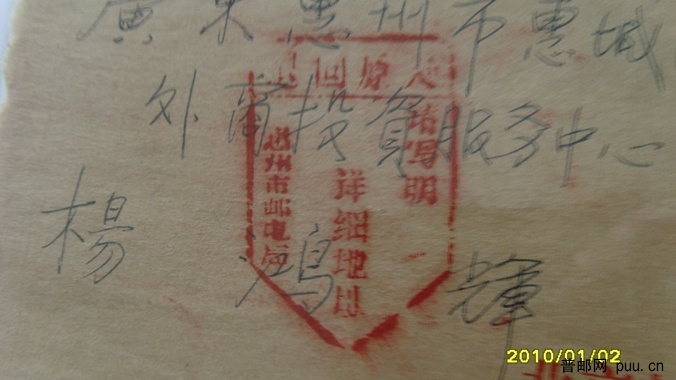 廣東惠州市惠城
外商投資服务中心
楊鴻輝
退回原处
请写明
详细地址
惠州市邮电局
2010/01/02
普邮网 puu.cn